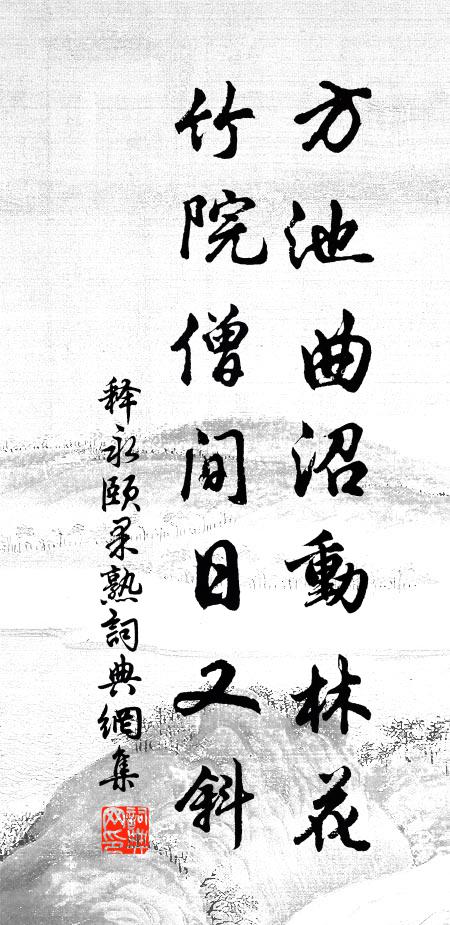 方池曲沼動林花
竹院僧间日又斜
释永颐杲熟詞典網集